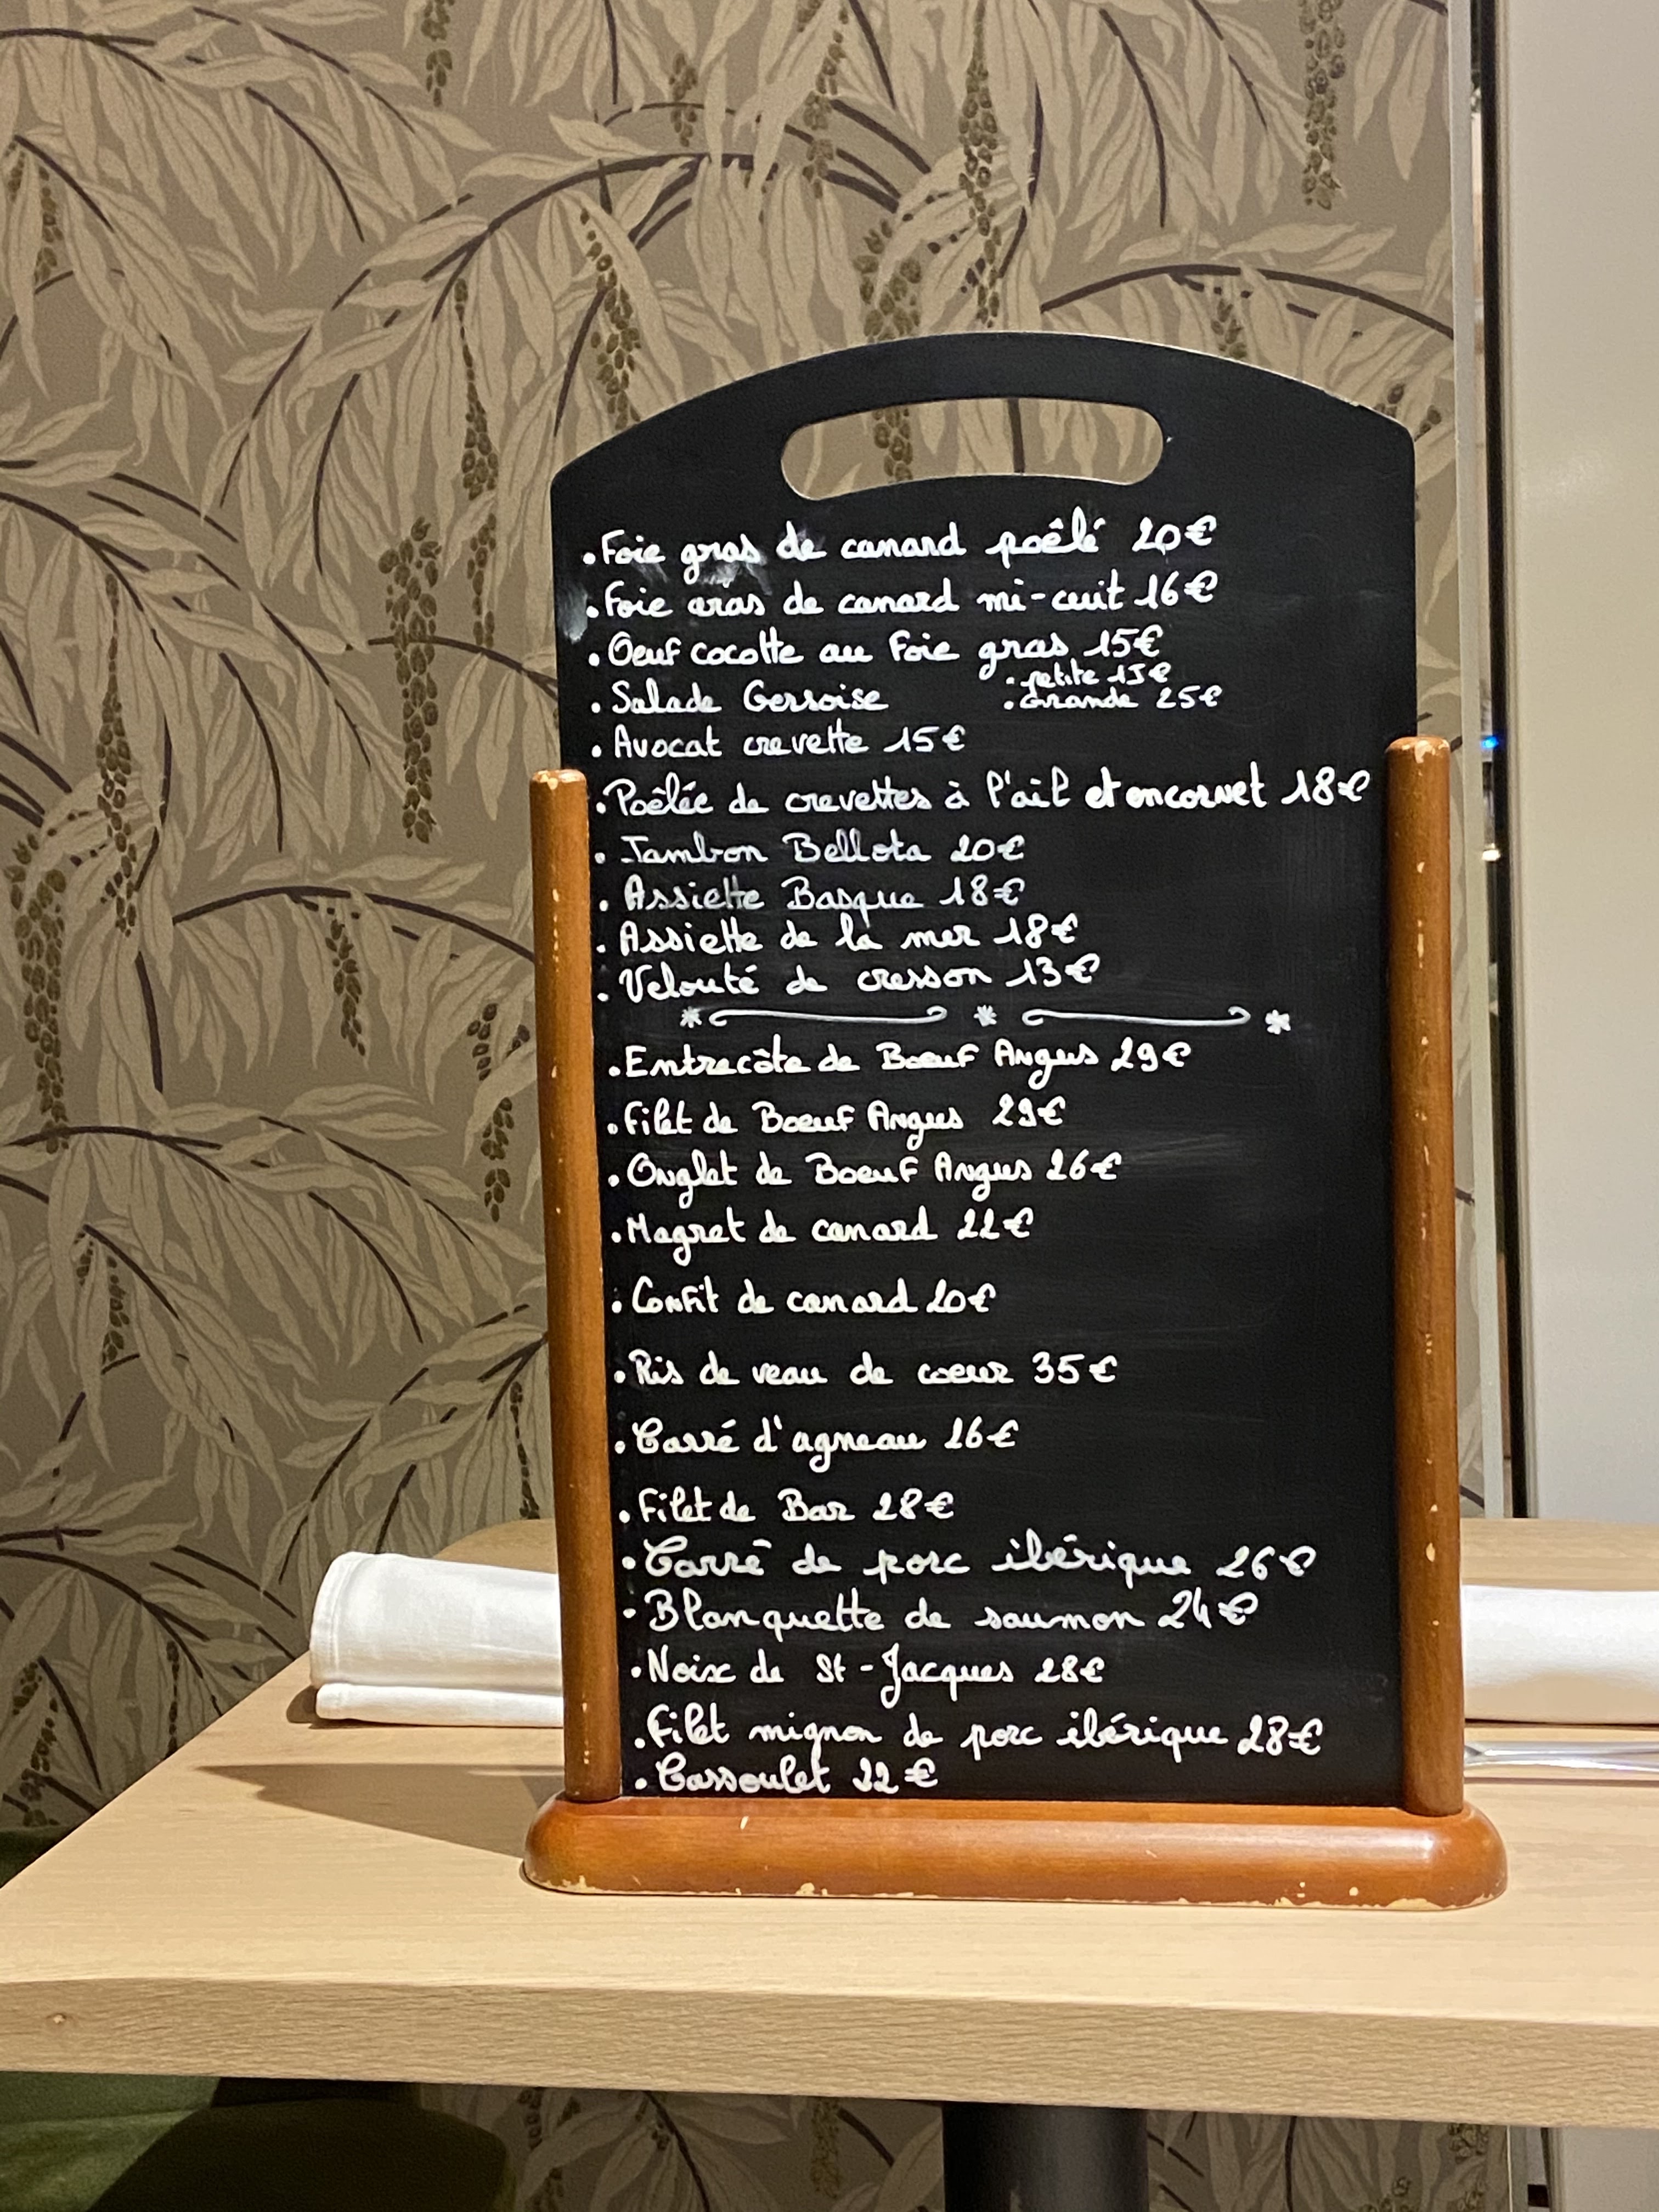 .Foie gras de canard poêlé 20€
.Foie gras de canard mi-cuit 16€
.Oeuf cocotte au Foie gras 15€
. petite 15€
. Salade Gersoise . Grande 25€
. Avocat crevette 15€
.Poêlée de crevettes à l'ail et encornet 18€
. Jambon Bellota 20€
. Assiette Basque 18€
. Assiette de la mer 18€
. Velouté de cresson 13€
.Entrecôte de Boeuf Angus 29€
.Filet de Boeuf Angus 29€
.Onglet de Boeuf Angus 26€
.Magret de canard 22€
.Confit de canard 20€
.Ris de veau de coeur 35€
.Carré d'agneau 26€
.Filet de Bar 28€
.Carré de porc ibérique 26€
.Blanquette de saumon 24€
.Noix de St-Jacques 28€
.Filet mignon de porc ibérique 28€
.Cassoulet 22€